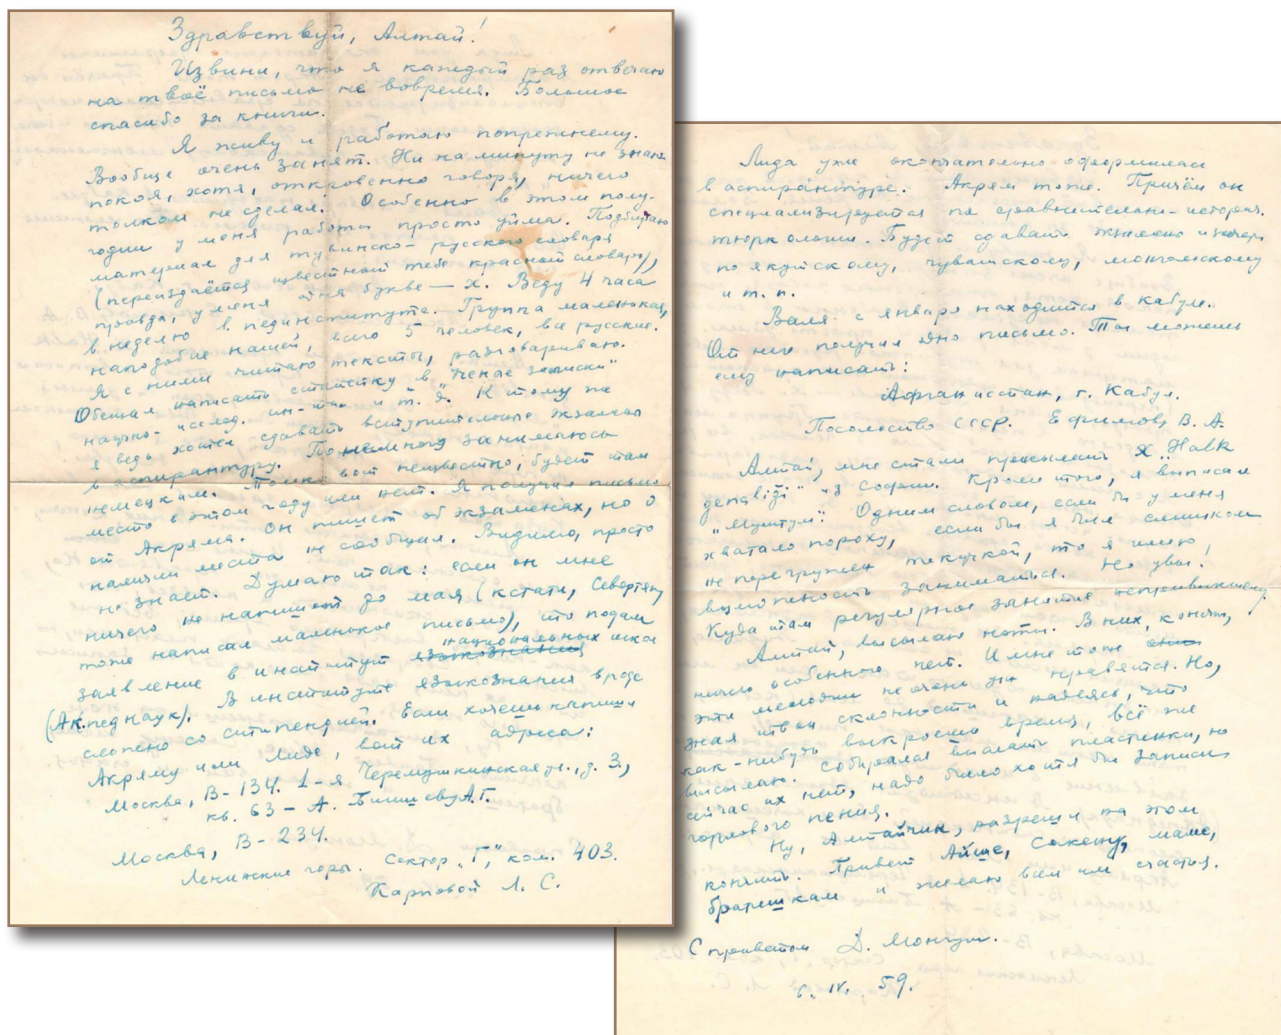 Здравствуй, Алтай!
Извини, что я каждый раз отвечаю
на твоё письмо не вовремя. Большое
спасибо за книги.
Я живу и работаю попрежнему.
Вообще очень занят. Ни на минуту не знаю
покоя, хотя, откровенно говоря, ничего
толком не сделал. Особенно в этом полу-
годии у меня работы просто уйма. Подбираю
материал для тувинско-русского словаря
(переиздаётся известный тебе красный словарь),
правда, у меня одна буква — х. Веду 4 часа
в неделю в пединституте. Группа маленькая,
наподобие нашей, всего 5 человек, все русские.
Я с ними читаю тексты, разговариваю.
Обещал написать статейку в "Ученые записки"
научно-исслед. ин-та и т. д. К тому же
я ведь хотел сдавать вступительные экзамены
в аспирантуру. Понемногу занимаюсь
немецким. Только вот неизвестно, будет там
место в этом году или нет. Я получил письмо
от Акряма. Он пишет об экзаменах, но о
наличии места не сообщил. Видимо, просто
не знает. Думаю так: если он мне
ничего не напишет до мая (кстати, Севортяну
тоже написал маленькое письмо), то подам
заявление в институт языкознания национальных школ
(Ак. пед наук). В институте языкознания вроде
сложно со стипендией. Если хочешь напиши
Акряму или Лиде, вот их адреса:
Москва, В-134. 1-я Черемушкинская ул., д. 3,
кв. 63 – А. Бишеву А.Г.
Москва, В-234.
Ленинские горы. Сектор „Г", ком. 403.
Карповой Л. С.
Лида уже окончательно оформилась
в аспирантуре. Акрем тоже. Причём он
специализируется по сравнительно-историч.
тюркологии. Будет сдавать экзамены
по якутскому, чувашскому, монгольскому
и т. п.
Валя с января находится в Кабуле.
От него получил одно письмо. Ты можешь
ему написать:
Афганистан, г. Кабул.
Посольство СССР. Ефимову В. А.
Алтай, мне стали присылать „Халк
" из Софии. Кроме того, я выписал
„Муштум". Одним словом, если бы у меня
хватало пороху, если бы я был слишком
не перегружен текучкой, то я имею
возможность заниматься. Но увы!
Куда там регулярное занятие непривыкшему.
Алтай, высылаю ноты. В них, конечно,
ничего особенного нет. И мне тоже
эти мелодии не очень уж нравятся. Но,
зная твои склонности и надеясь, что
как-нибудь выкроешь время, всё же
высылаю. Собирался выслать пластинки, но
сейчас их нет, надо было хотя бы записи
горлового пения.
Ну, Алтайчик, разреши на этом
кончить. Привет Айше, Сакену, маме,
братишкам и желаю всем им счастья.
С приветом Д. Монгуш.
6. IV. 59.